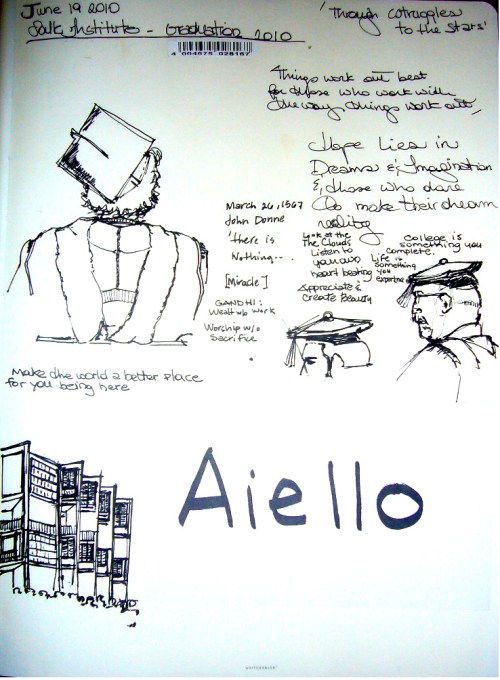 June 19 2010
Salk Institute - Graduation 2010
4 004675 028167
'Through struggles
to the Stars'
Things work out best
for those who work with
the way things work out,
Hope Lies in
Dreams & Imagination
& those who dare
to make their dream
reality
March 26, 1567
John Donne
'there is
Nothing--
[Miracle]
GANDHI:
Wealth w/o work
Worship w/o
Sacrifice
Look at the
The Clouds
Listen to
your own
heart beating
Appreciate &
Create Beauty
College is
something you
complete.
Life is
something
you
experience
Make the world a better place
for you being here
Aiello